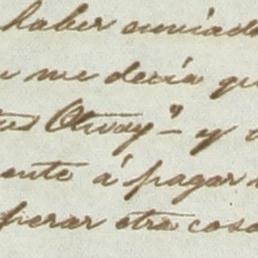 haber enviado
me decía qu
Otway" - y
ente á pagar
perar otra cosa